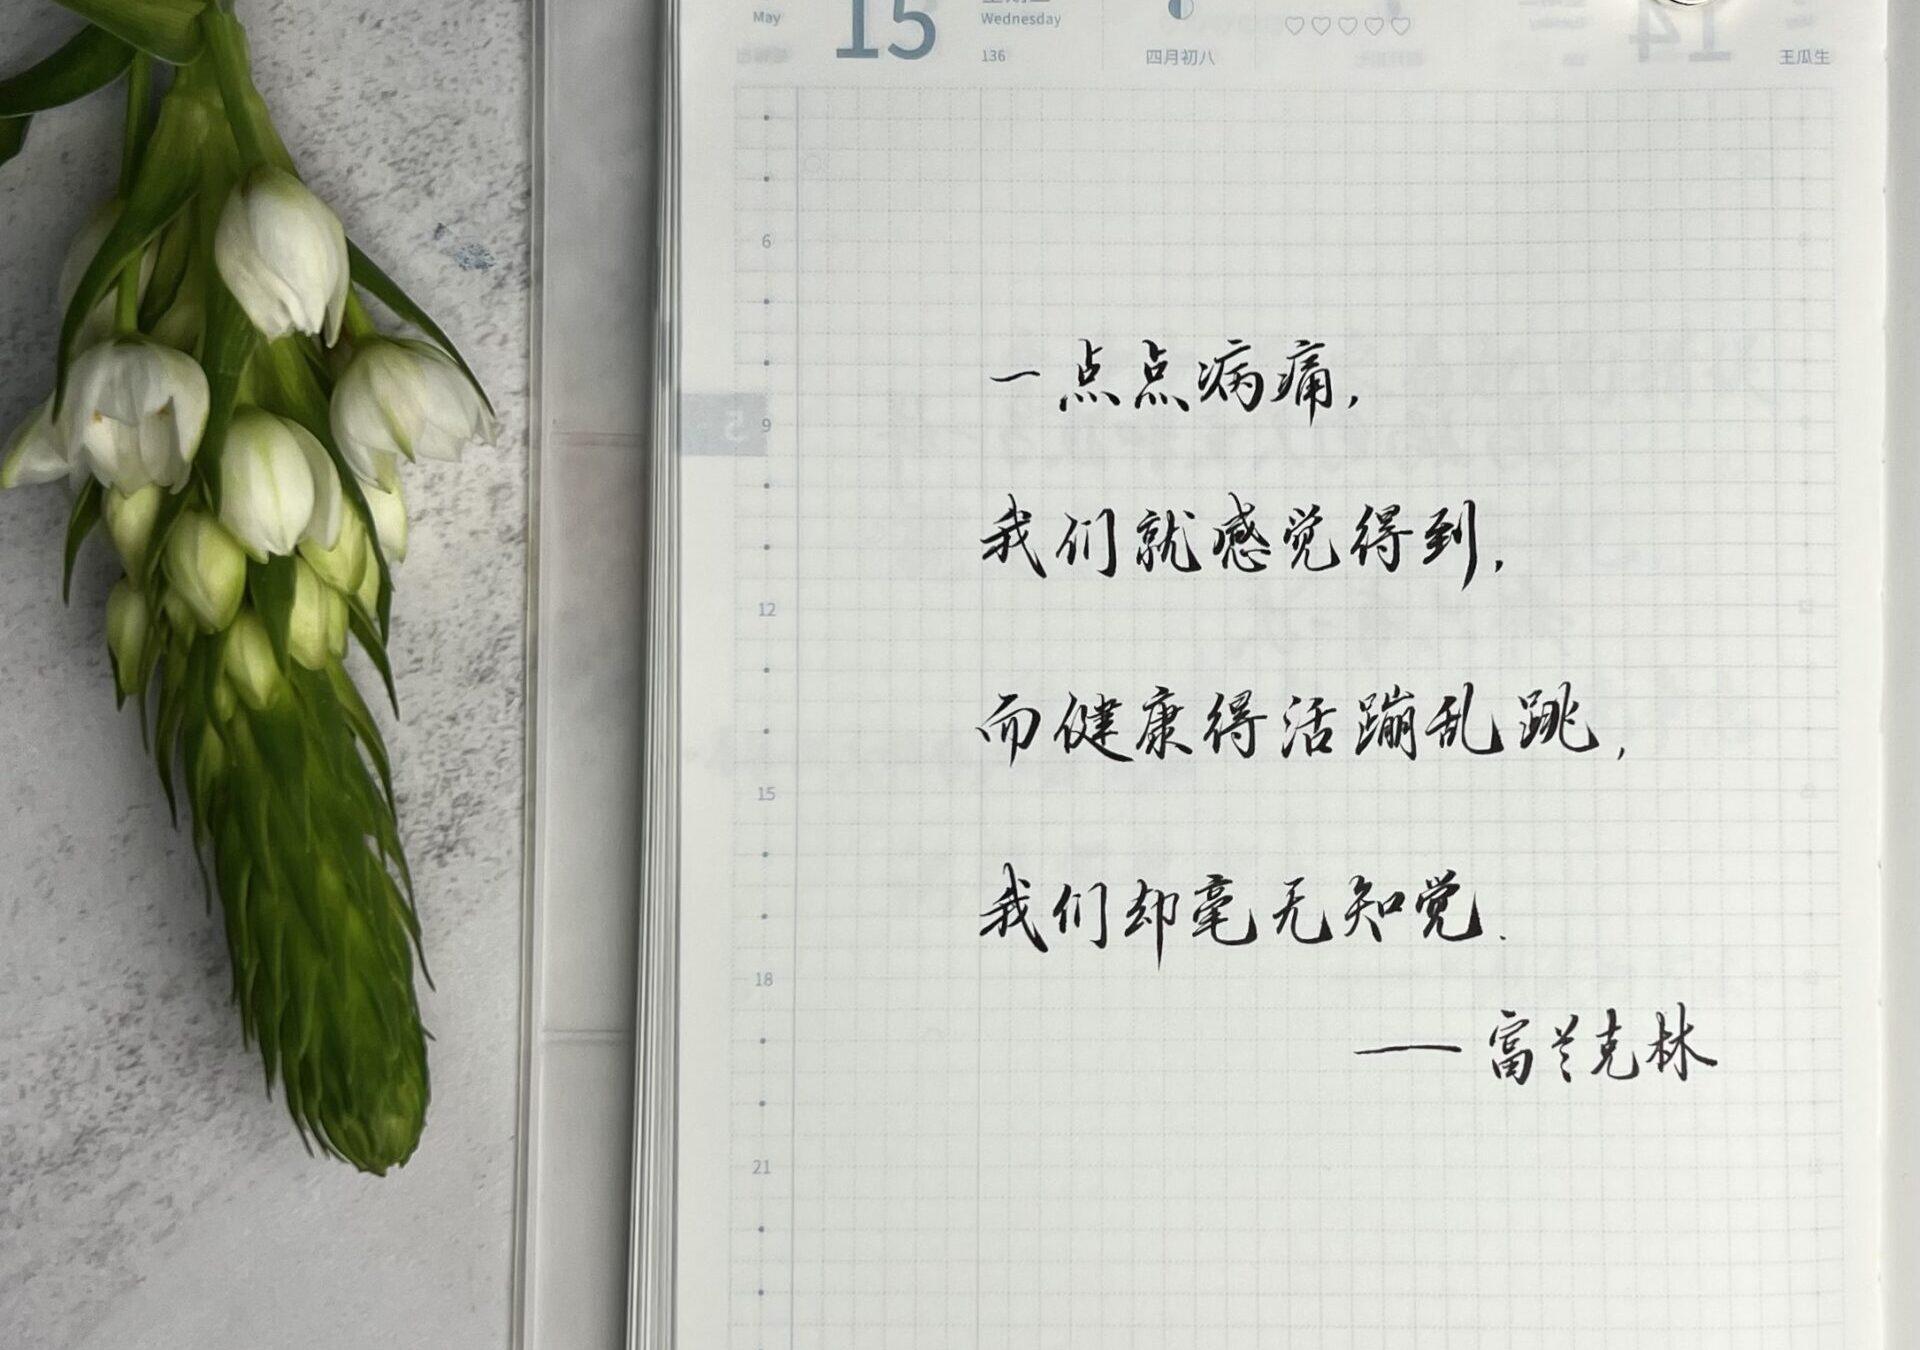 May 15 Wednesday ♡♡♡♡♡ 14
136 四月初八 王瓜生
6
一点点病痛，
5 9
我们就感觉得到，
12
而健康得活蹦乱跳，
15
我们却毫无知觉.
18
——富兰克林
21